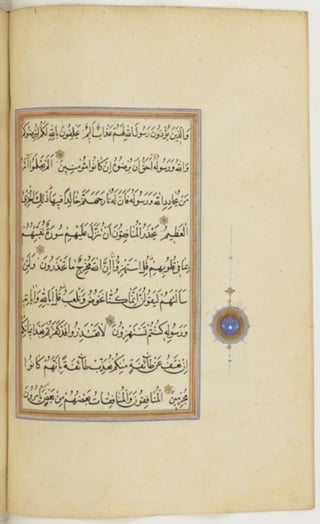 وَالَّذِينَ يُؤْذُونَ رَسُولَ اللَّهِ لَهُمْ عَذَابٌ أَلِيمٌ يَحْلِفُونَ بِاللَّهِ لَكُمْ لِيُرْضُوكُمْ
وَاللَّهُ وَرَسُولُهُ أَحَقُّ أَنْ يُرْضُوهُ إِنْ كَانُوا مُؤْمِنِينَ أَلَمْ يَعْلَمُوا أَنَّهُ
مَنْ يُحَادِدِ اللَّهَ وَرَسُولَهُ فَأَنَّ لَهُ نَارَ جَهَنَّمَ خَالِدًا فِيهَا ذَلِكَ الْخِزْيُ
الْعَظِيمُ يَحْذَرُ الْمُنَافِقُونَ أَنْ تُنَزَّلَ عَلَيْهِمْ سُورَةٌ تُنَبِّئُهُمْ
بِمَا فِي قُلُوبِهِمْ قُلِ اسْتَهْزِؤُا إِنَّ اللَّهَ مُخْرِجٌ مَا تَحْذَرُونَ وَلَئِنْ
سَأَلْتَهُمْ لَيَقُولُنَّ إِنَّمَا كُنَّا نَخُوضُ وَنَلْعَبُ قُلْ أَبِاللَّهِ وَآيَاتِهِ
وَرَسُولِهِ كُنْتُمْ تَسْتَهْزِؤُنَ لَا تَعْتَذِرُوا قَدْ كَفَرْتُمْ بَعْدَ إِيمَانِكُمْ
إِنْ نَعْفُ عَنْ طَائِفَةٍ مِنْكُمْ نُعَذِّبْ طَائِفَةً بِأَنَّهُمْ كَانُوا
مُجْرِمِينَ الْمُنَافِقُونَ وَالْمُنَافِقَاتُ بَعْضُهُمْ مِنْ بَعْضٍ يَأْمُرُونَ